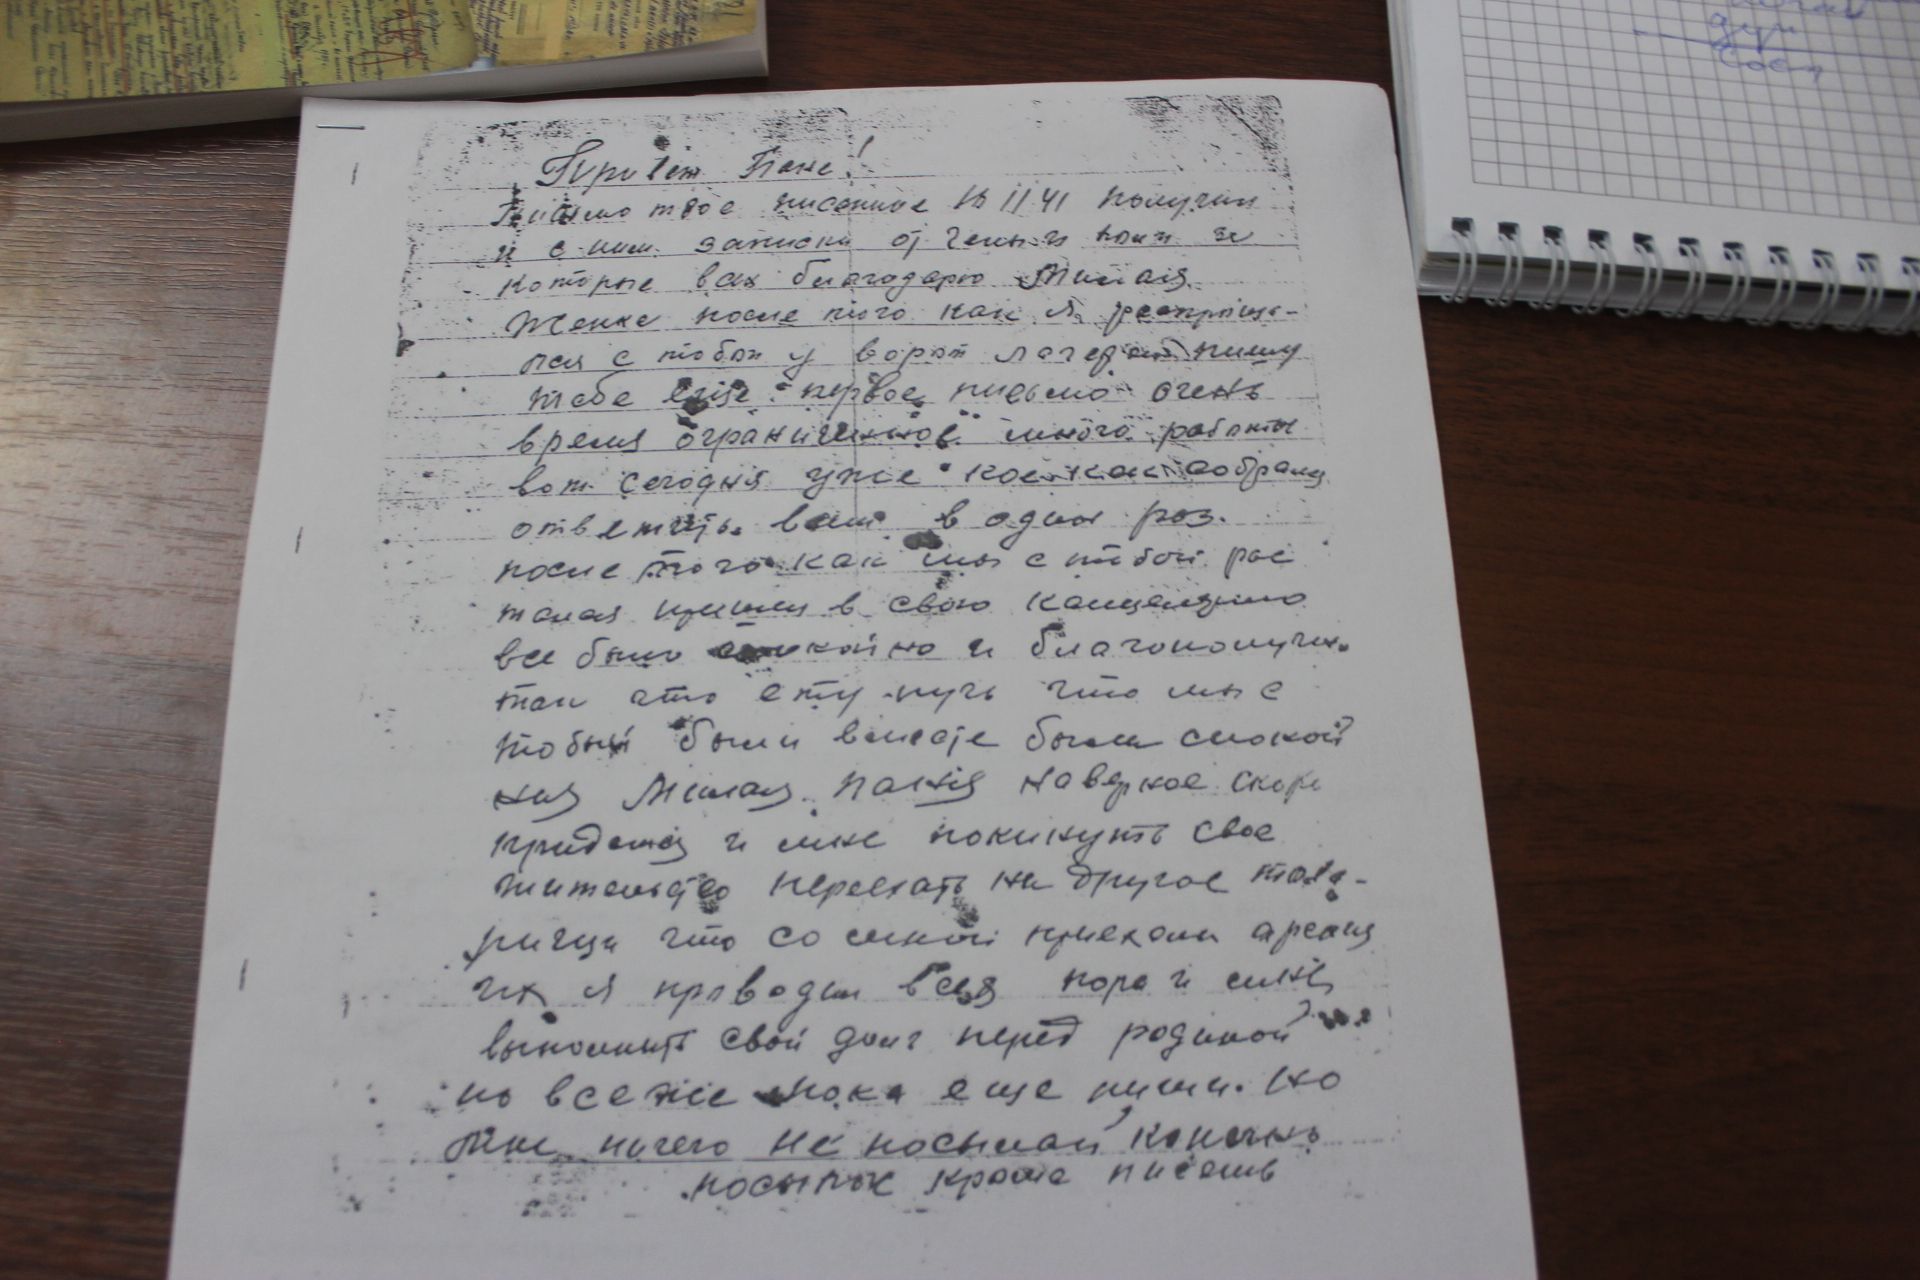 Привет Пане!
Письмо твое писанное 10 11 41 получил
и с ним записки от Гены и за
которые вас благодарю Милая
Женка после того как я распроща-
лся с тобой у ворот лагеря пишу
тебе еще первое письмо очень
время ограниченное много работы
вот сегодня уже кое как собрался
ответить вам в один раз.
после того как мы с тобой рас
талая пришел в свою канцелярию
все было спокойно и благополучно
так что ету ночь что мы с
тобый были вместе были спокой
ная Милая Паня наверное скоро
придется и мне покинуть свое
жительство переехать на другое това-
рищи что со мной приехали
их я проводил всех пора и мне
выполнить свой долг перед родиной
но все же пока еще пиши. но
мне ничего не посылай конечнь
посылок кроме писемь